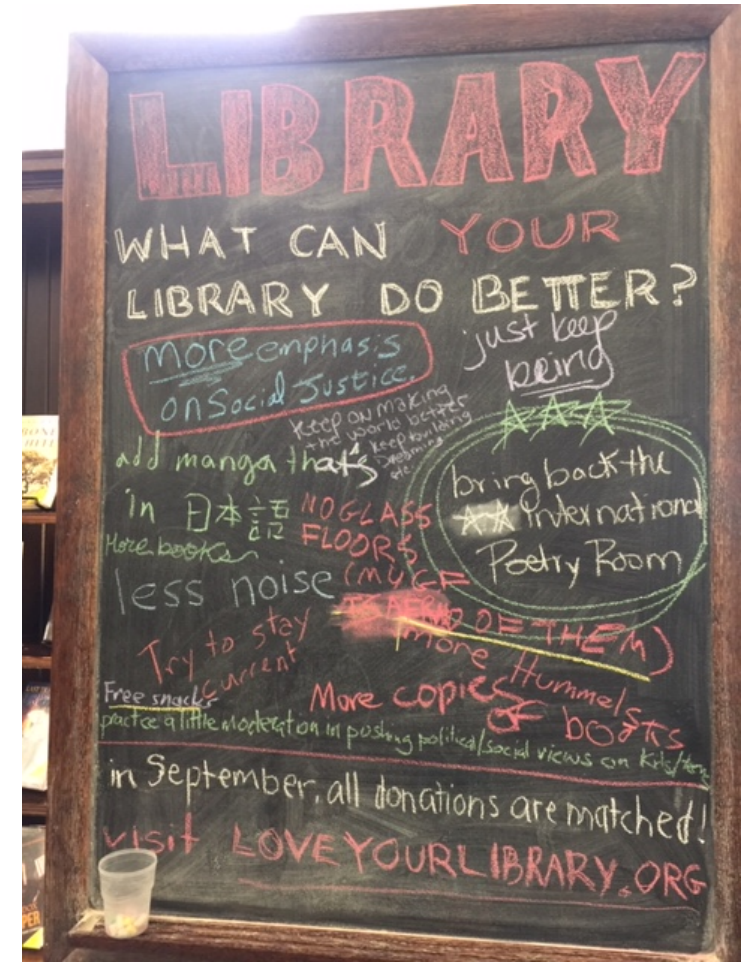 LIBRARY
WHAT CAN YOUR
LIBRARY DO BETTER?
more emphasis
on Social Justice.
just keep
being
keep on making
the world better
keep building
add manga that's
in 日本語
bring back the
International
Poetry Room
NO GLASS
FLOORS
(MY GF
IS AFRAID OF THEM)
More books
less noise
Try to stay
current
more Hummels
Free snacks
More copies
of books
practice a little moderation in pushing political/social views on kids/teens
in September, all donations are matched!
visit LOVEYOURLIBRARY.ORG